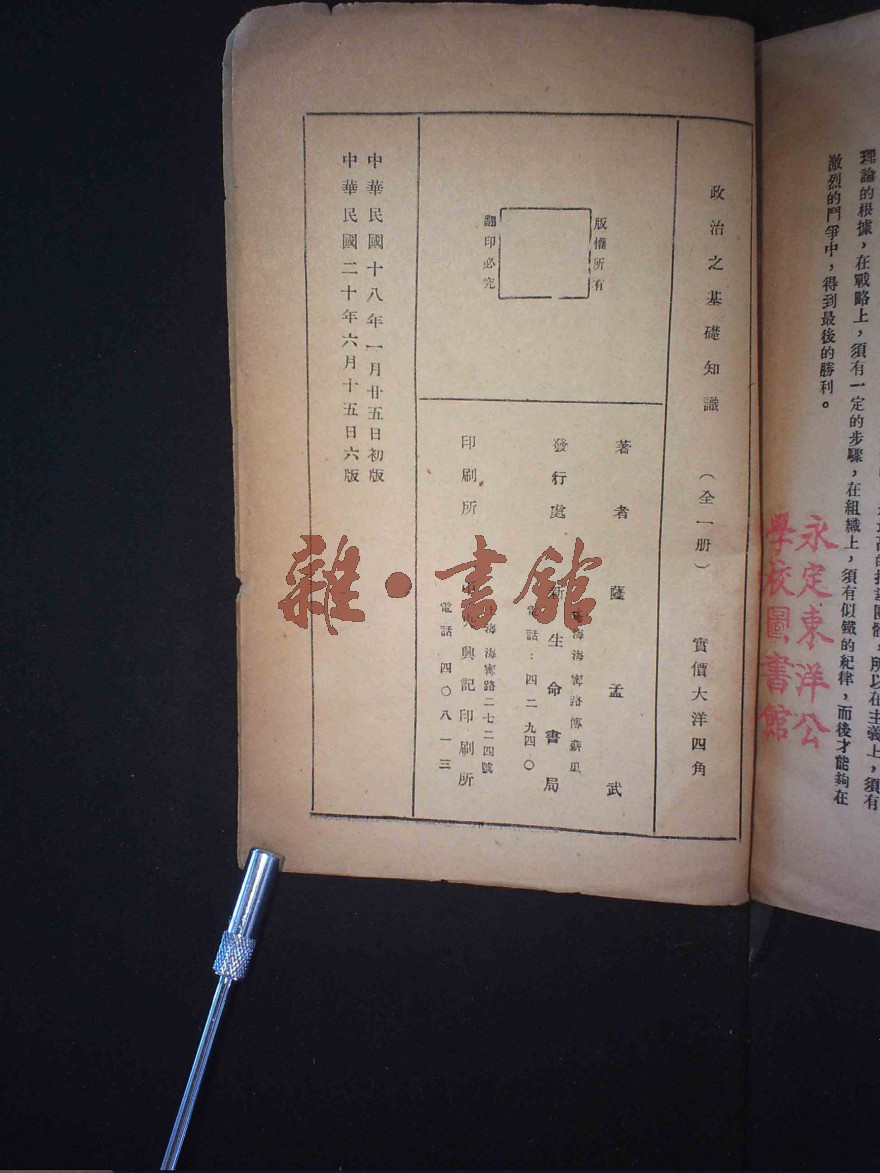 理論的根據，在戰略上，須有一定的步驟，在組織上，須有似鐵的紀律，而後才能夠在
激烈的鬥爭中，得到最後的勝利。
永定東洋公
學校圖書館
政治之基礎知識 （全一册） 實價大洋四角
版權所有
翻印必究
著者 薩孟武
海海寗路
發行處 新生命書局
電話：四二九四〇
海海寗路二七二四號
印刷所 興記印刷所
電話 四〇八一三
中華民國十八年一月廿五日初版
中華民國二十年六月十五日六版
雜·書館